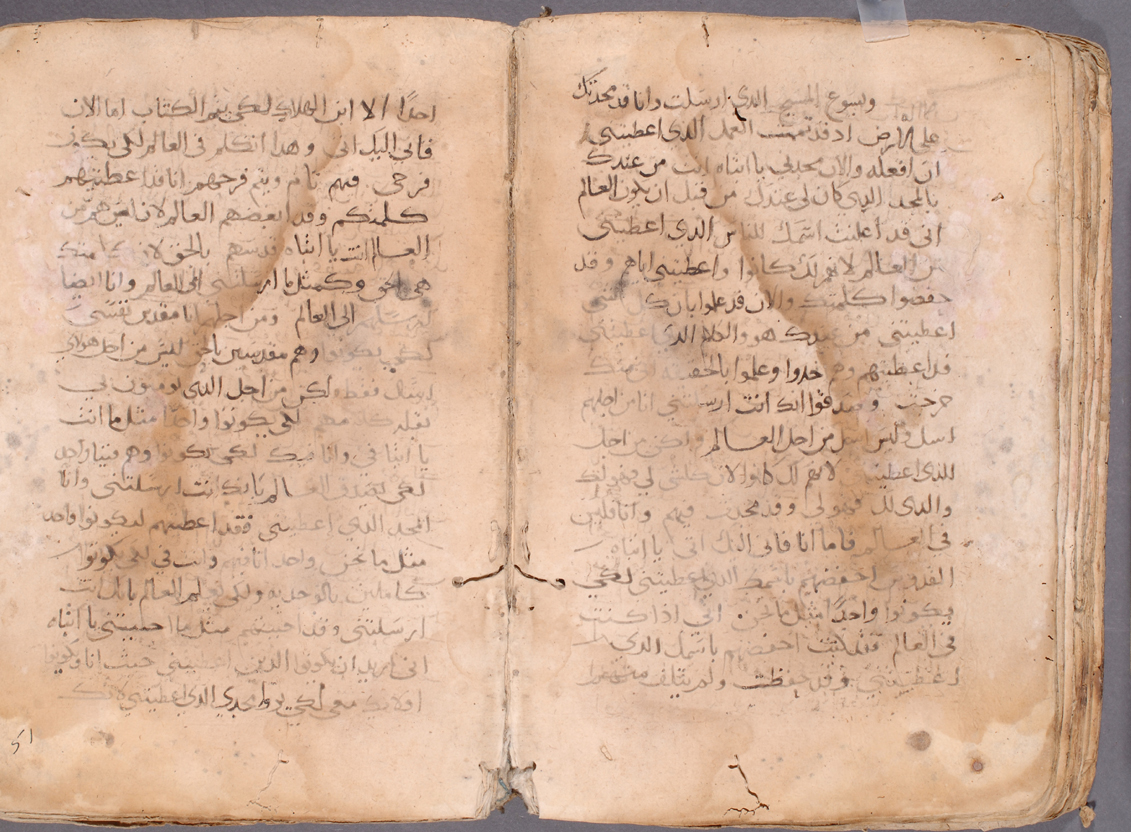 ويسوع المسيح الذي ارسلت وانا قد مجدتك
على الارض اذ قد تممت العمل الذي اعطيتني
ان افعله والان مجدني يا ابتاه انت من عندك
بالمجد الذي كان لي عندك من قبل ان يكون العالم
اني قد اعلنت اسمك للناس الذي اعطيتني
من العالم لانهم لك كانوا واعطيتني اياهم وقد
حفضوا كلمتك والان قد علموا بان كل التي
اعطيتني من عندك هو والكلام الذي اعطيتني
قد اعطيتهم وهم اخدوا وعلموا بالحقيقة اني منك
خرجت وصدقوا انك انت ارسلتني انا من اجلهم
اسل وليس اسل من اجل العالم ولكن من اجل
الذي اعطيتني لانهم لك كانوا لان كلشي لي فهو لك
والذي لك فهو لي وقد مجدت فيهم وانا فليس
في العالم فاما انا فاني اليك اتي يا ابتاه
القدوس احفضهم باسمك الذي اعطيتني لكي
يكونوا واحدا مثل ما نحن اني اذا كنت
في العالم فقد كنت احفضهم باسمك الذي
اعطيتني وقد حفظت ولم يتلف منهم
احدا الا ابن الهلاك لكي يتم الكتاب اما الان
فاني اليك اتي وهذا اتكلم في العالم لكي يكون
فرحي فيهم تام ويتم فرحهم انا قد اعطيتهم
كلمتكم وقد ابغضهم العالم لان ليس هم من
العالم انت يا ابتاه قدسهم بالحق لان كلمتك
هي الحق وكمثل ما ارسلتني الى العالم وانا ايضا
ارسلهم الى العالم ومن اجلهم انا مقدس نفسي
لكي يكونوا وهم مقدسين بالحق ليس من اجل هولاي
اسل فقط ولكن من اجل الذي يومنون بي
بقبل كلامهم لكي يكونوا واحدا مثل ما انت
يا ابتا في وانا فيك لكي يكونوا وهم فينا واحد
لكي يصدق العالم بانك انت ارسلتني وانا
المجد الذي اعطيتني فقد اعطيتهم ليكونوا واحد
مثل ما نحن واحد انا فيهم وانت في لكي يكونوا
كاملين بالوحدية ولكي يعلم العالم بانك انت
ارسلتني وقد احببتهم مثل ما احببتني يا ابتاه
اني اريد ان يكونوا الذين اعطيتني حيث انا ويكونوا
اولايك معي لكي يروا مجدي الذي اعطيتني لانك
51